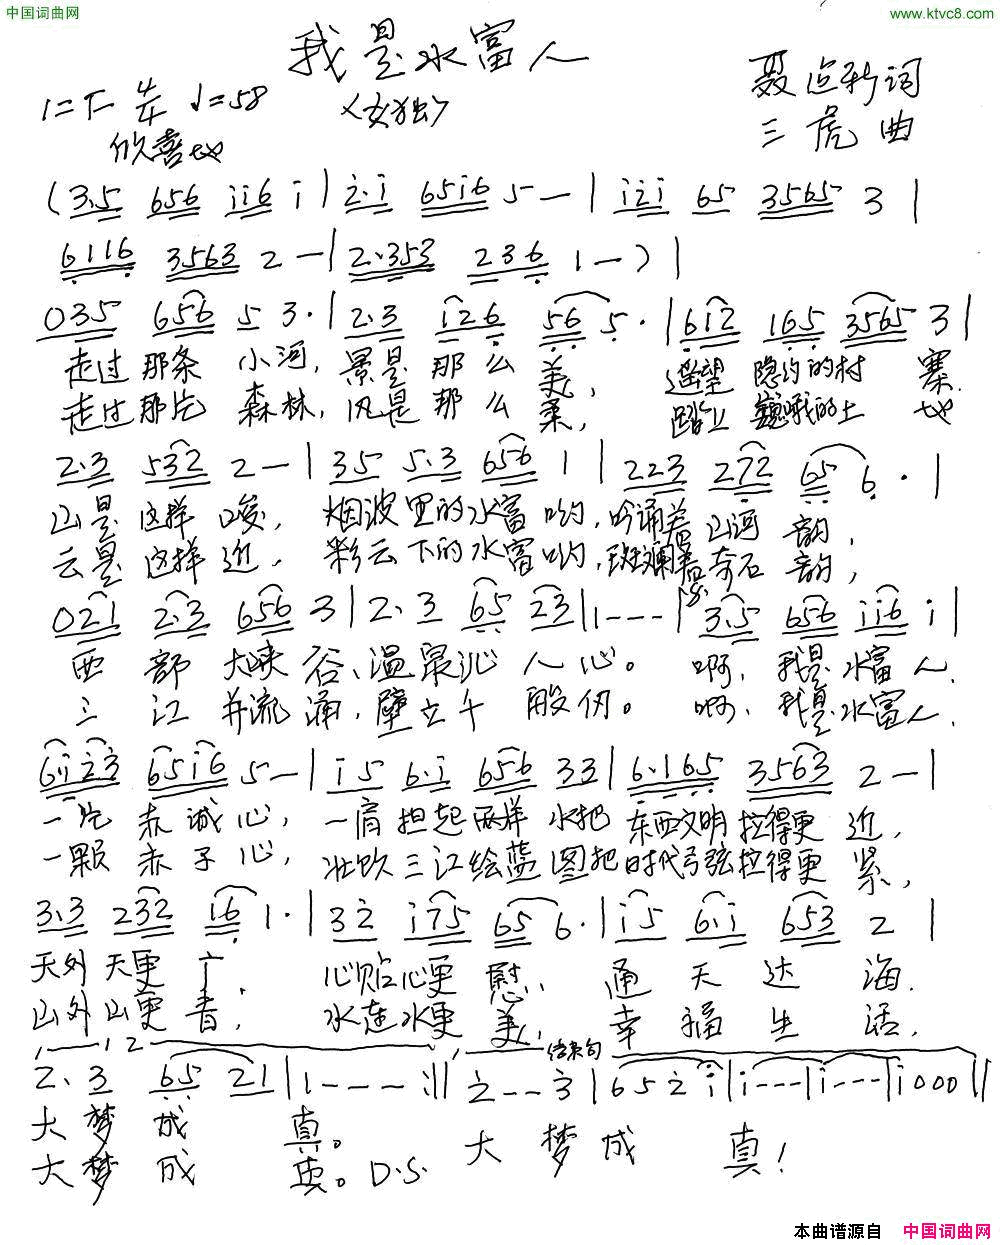 中国词曲网
www.ktvc8.com
我是水富人
1=F 4/4 ♩=58
〈女独〉
聂应新词
欣喜地
三虎曲
(3.5 656 i i 6 i | 2.i 65i6 5 — | i 2 i 65 3565 3 |
6116 3563 2 — | 2.353 236 1 — ) |
035 656 5 3. | 2.3 i26 56 5. | 612 165 3565 3 |
走过那条 小河, 景是那么 美, 遥望 隐约的村 寨.
走过那片 森林, 风是那么 柔, 踏上 巍峨的土 地
2.3 532 2 — | 35 5.3 656 1 | 223 272 65 6. |
山是这样 峻, 烟波里的水富哟, 吟诵着山河 韵,
云是这样 近. 彩云下的水富哟, 斑斓着奇石 韵,
021 2.3 656 3 | 2. 3 65 23 | 1 - - - | 3.5 656 i i 6 i |
西 部 大峡 谷、温泉沁 人 心。 啊, 我是水富人.
三 江 并流 涌, 壁立千 般 仞。 啊, 我是水富人,
6i23 65i6 5 — | i5 6.i 656 33 | 6.165 3563 2 — |
一片 赤诚心, 一肩担起两样 水把 东西文明拉得更 近,
一颗 赤子心, 壮饮三江绘蓝 图把时代弓弦拉得更 紧,
3.3 232 16 1. | 32 i75 65 6. | i5 6.i 653 2 |
天外天更 广. 心贴心更 慰, 通 天 达 海.
山外山更 青, 水连水更 美, 幸 福 生 活,
1 2 结束句
2. 3 65 21 | 1 - - - :‖ 2 - - 3 | 6 5 2 i | i - - - | i - - - | i 0 0 0 ‖
大 梦 成 真。 大 梦 成 真!
大 梦 成 真。D.S.
本曲谱源自 中国词曲网